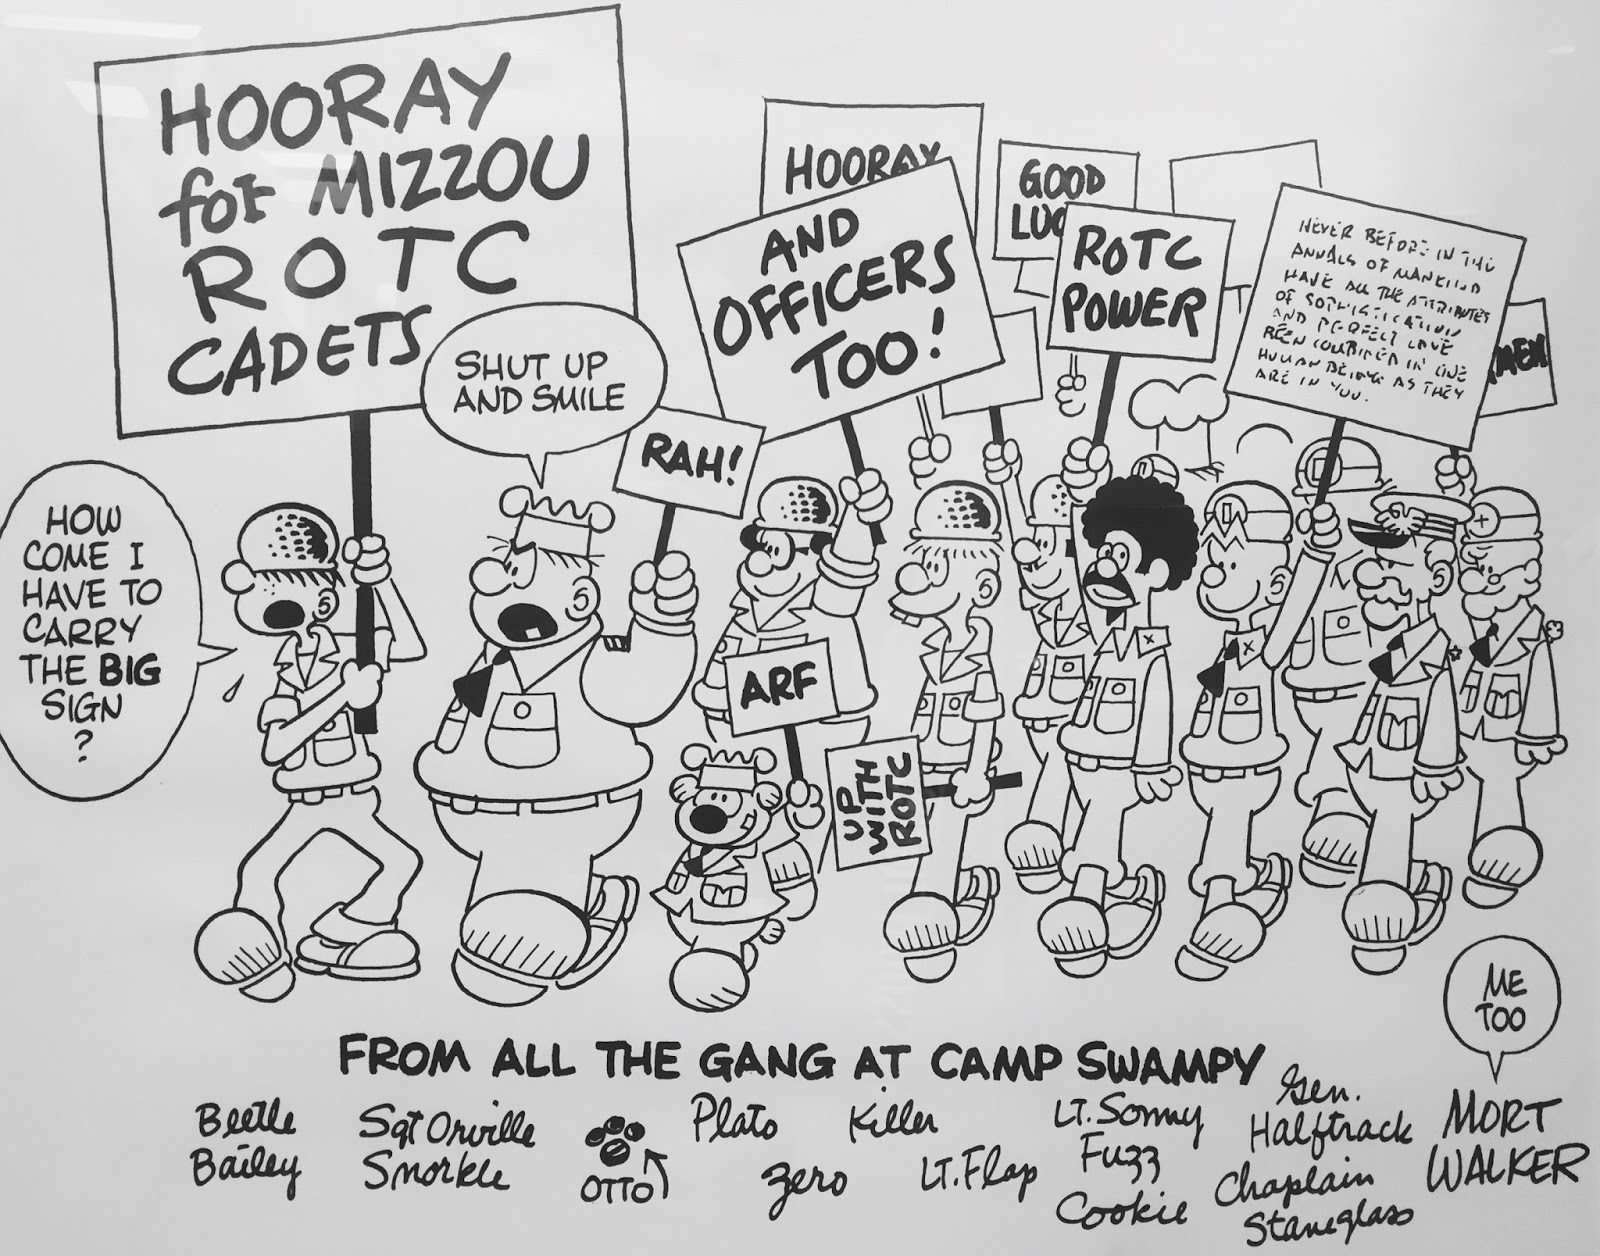 HOORAY
for MIZZOU
ROTC
CADETS
SHUT UP
AND SMILE
HOW
COME I
HAVE TO
CARRY
THE BIG
SIGN
?
RAH!
HOORAY
AND
OFFICERS
TOO!
GOOD
ROTC
POWER
NEVER BEFORE IN THE
ANNALS OF MANKIND
HAVE ALL THE ATTRIBUTES
OF SOPHISTICATION
AND PERFECT LOVE
BEEN COMBINED IN ONE
HUMAN BEING AS THEY
ARE IN YOU.
ARF
UP
WITH
ROTC
ME
TOO
FROM ALL THE GANG AT CAMP SWAMPY
Beetle
Bailey
Sgt Orville
Snorkle
OTTO
Plato
Zero
Killer
Lt. Flap
Lt. Sonny
Fuzz
Cookie
Gen.
Halftrack
Chaplain
Staneglass
MORT
WALKER